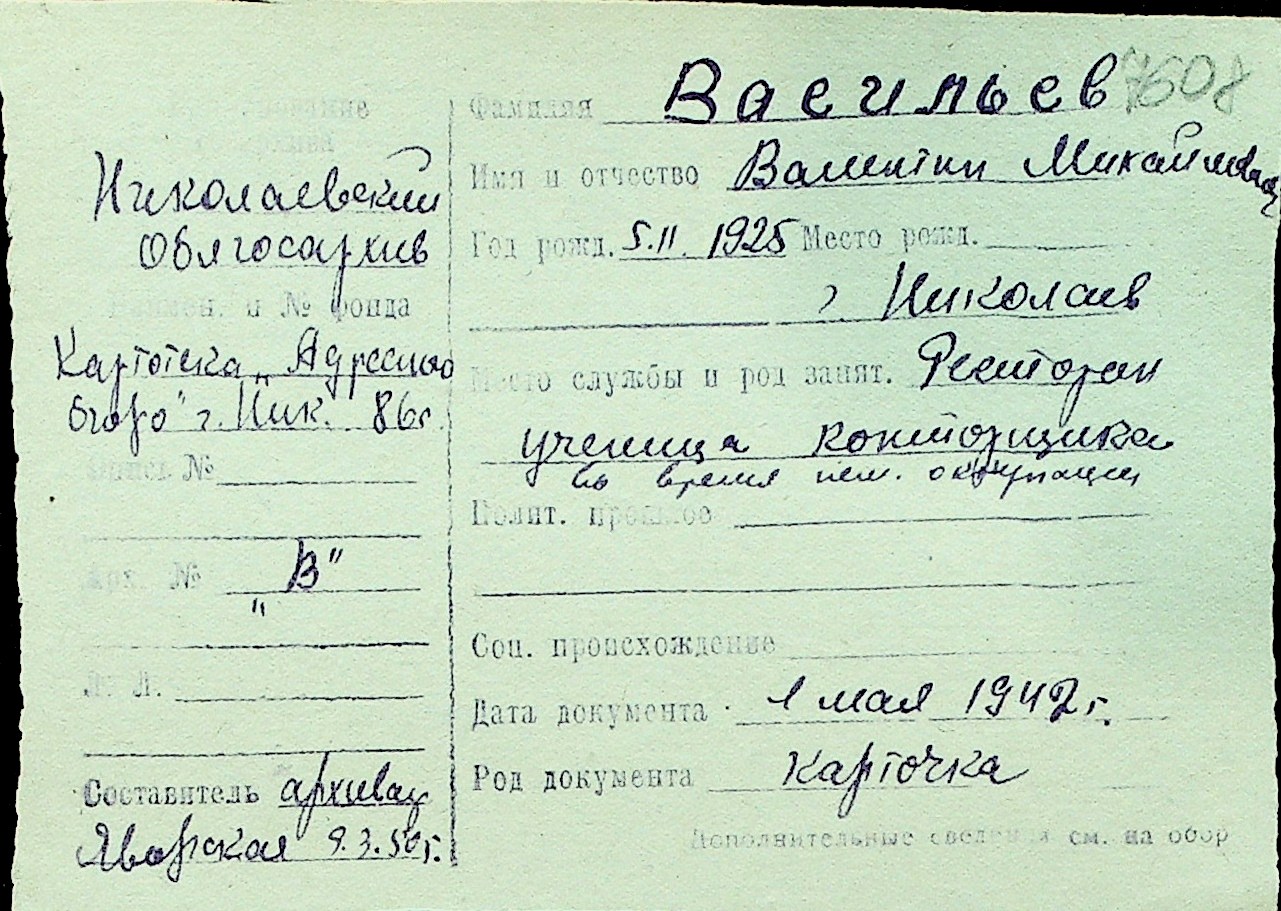 Васильев 7608
Фамилия
Николаевский
Облгосархив
Наимен. и № фонда
Картотека „Адресного
бюро" г. Ник. 86г.
Опись №
Арх. № „В"
Л. Л.
Составитель архивар
Яворская 9.3.50г.
Имя и отчество Валентин Михайлович
Год рожд. 5.II. 1925 Место рожд.
г. Николаев
Место службы и род занят. Ресторан
ученица конторщика
во время нем. оккупации
Полит. прошлое
Соц. происхождение
Дата документа 1 мая 1942 г.
Род документа карточка
Дополнительные сведения см. на обор